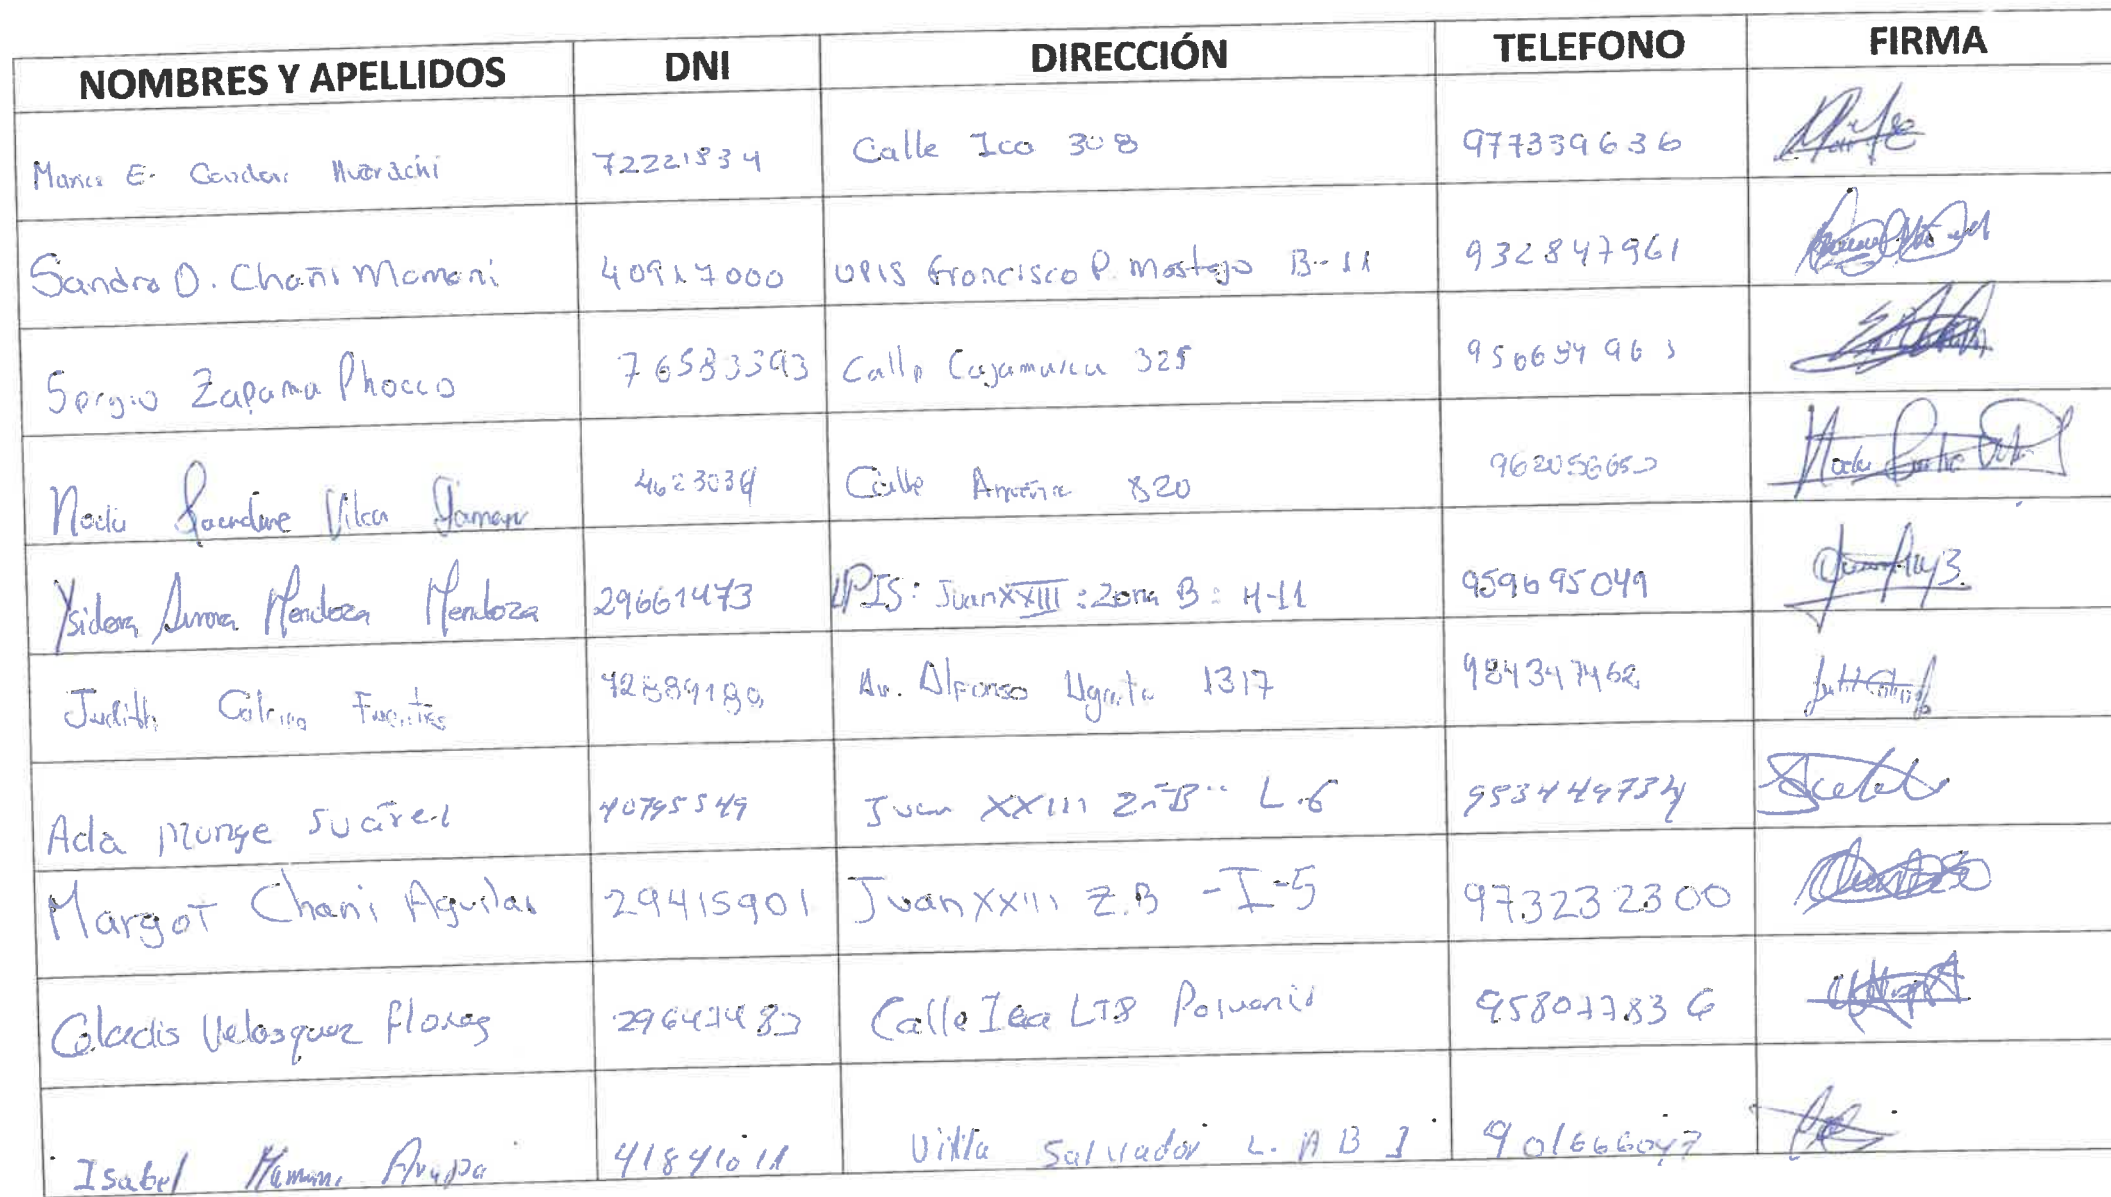 NOMBRES Y APELLIDOS DNI DIRECCIÓN TELEFONO FIRMA
E. Huarachi 72221834 Calle Ica 308 977339636
Sandra D. Chañi Mamani 40917000 UPIS Francisco P. Mostajo B-11 932847961
Sergio Zapana Phocco 76583393 Calle Cajamarca 325 95669496
Vilca Calle 820
Ysidora Aurora Mendoza Mendoza 29661473 UPIS: Juan XXIII: Zona B: H-11 959695049
Judith Fuentes Av. Alfonso Ugarte 1317 984347462
Ada Monge Suárez 40795549 Juan XXIII L.6 953449734
Margot Chani Aguilar 29415901 Juan XXIII Z.B -I-5 973232300
Gladis Velasquez Flores Calle Ica LT8 958077836
Isabel Mamani 41841011 Villa Salvador L. A B 901666047